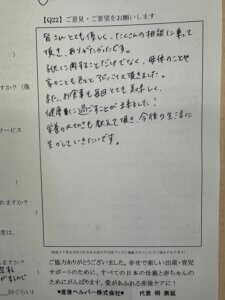 【Q22】ご意見・ご要望をお願いします
皆さんとても優しく、たくさんの相談に乗って
頂き、ありがたかったです。
乳児に関することだけでなく、母体のことや
家のことも色々とアドバイス頂きました。
また、お食事も毎回とても美味しく、
健康的に過ごすことが出来ました！
栄養の大切さも教えて頂き、今後の生活に
生かしていきたいです。
ご協力ありがとうございました。幸せで楽しい出産・育児
サポートのために、すべての日本の母親と赤ちゃんの
ためにがんばります。愛があふれる産後ケアに！
♥産後ヘルパー株式会社♥ 代表 明 素延
すか？（複
サービス
れますか？
度は、
ますか？
回ぐらい）